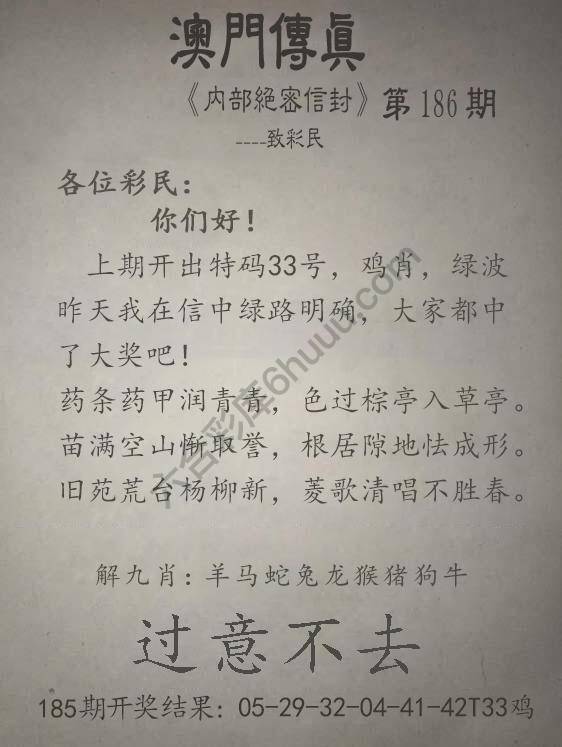 澳門傳真
《内部絕密信封》第186期
----致彩民
各位彩民：
你们好！
上期开出特码33号，鸡肖，绿波
昨天我在信中绿路明确，大家都中
了大奖吧！
药条药甲润青青，色过棕亭入草亭。
苗满空山惭取誉，根居隙地怯成形。
旧苑荒台杨柳新，菱歌清唱不胜春。
解九肖：羊马蛇兔龙猴猪狗牛
过意不去
185期开奖结果：05-29-32-04-41-42T33鸡
六合彩库6huuu.com